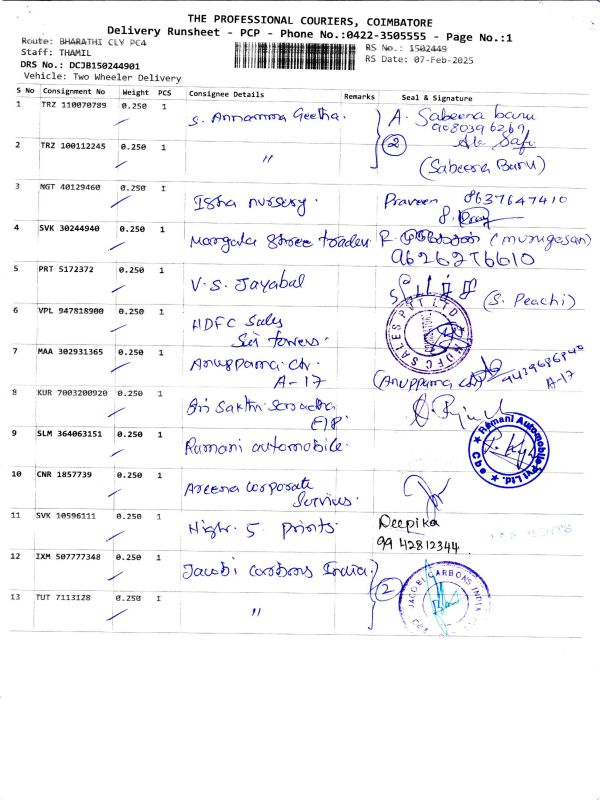 THE PROFESSIONAL COURIERS, COIMBATORE
Delivery Runsheet - PCP - Phone No.:0422-3505555 - Page No.:1
Route: BHARATHI CLY PC4
RS No.: 1502449
Staff: THAMIL
RS Date: 07-Feb-2025
DRS No.: DCJB150244901
Vehicle: Two Wheeler Delivery
S No Consignment No Weight PCS Consignee Details Remarks Seal & Signature
1 TRZ 110070789 0.250 1 S. Annamma Geetha. A. Sabeena banu
9080396269
2 TRZ 100112245 0.250 1 " 2
(Sabeena Banu)
3 NGT 40129460 0.250 1 Isha nursery. Praveen 8637647410
4 SVK 30244940 0.250 1 Mangala Shree traders (murugesan)
9626276610
5 PRT 5172372 0.250 1 V.S. Jayabal
(S. Peachi)
6 VPL 947818900 0.250 1 HDFC Sales
Sri towers.
HDFC SALES PVT LTD
7 MAA 302931365 0.250 1 Anuppama ch.
A-17 (Anuppama ch)
A-17
8 KUR 7003200920 0.250 1 Sri Sakthi
9 SLM 364063151 0.250 1 Ramani automobile.
Ramani Automobile Pvt.Ltd. Cbe
10 CNR 1857739 0.250 1 Areena Corporate
Services.
11 SVK 10596111 0.250 1 High. 5. prints. Deepika
9942812344
12 IXM 507777348 0.250 1 Jacobi carbons India.
13 TUT 7113128 0.250 1 " 2
JACOBI CARBONS INDIA